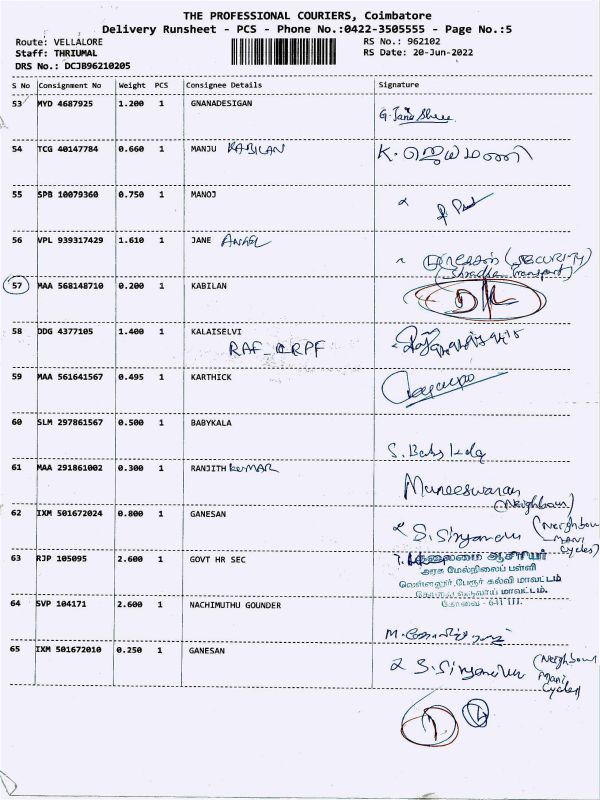 THE PROFESSIONAL COURIERS, Coimbatore
Delivery Runsheet - PCS - Phone No.:0422-3505555 - Page No.:5
Route: VELLALORE
RS No.: 962102
Staff: THRIUMAL
RS Date: 20-Jun-2022
DRS No.: DCJB96210205
S No Consignment No Weight PCS Consignee Details Signature
53 MYD 4687925 1.200 1 GNANADESIGAN
54 TCG 40147784 0.660 1 MANJU KABILAN K.
55 SPB 10079360 0.750 1 MANOJ
56 VPL 939317429 1.610 1 JANE ANGEL (SECURITY)
(Shradha Transport)
57 MAA 568148710 0.200 1 KABILAN
58 DDG 4377105 1.400 1 KALAISELVI
RAF CRPF
59 MAA 561641567 0.495 1 KARTHICK
60 SLM 297861567 0.500 1 BABYKALA
S. Baby
61 MAA 291861002 0.300 1 RANJITH KUMAR
Muneeswaran
(Neighbour)
62 IXM 501672024 0.800 1 GANESAN
(Neighbour
Mani
Cycles)
63 RJP 105095 2.600 1 GOVT HR SEC
தலைமை ஆசிரியர்
அரசு மேல்நிலைப் பள்ளி
வெள்ளலூர், பேரூர் கல்வி மாவட்டம்
கோவை வருவாய் மாவட்டம்.
கோவை - 641 111.
64 SVP 104171 2.600 1 NACHIMUTHU GOUNDER
65 IXM 501672010 0.250 1 GANESAN
(Neighbour
Mani
Cycles)